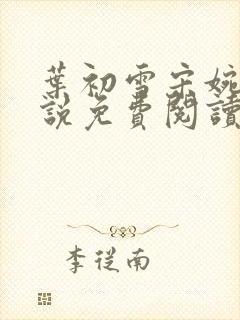 葉初雪宋婉
說免費閱讀
李從南